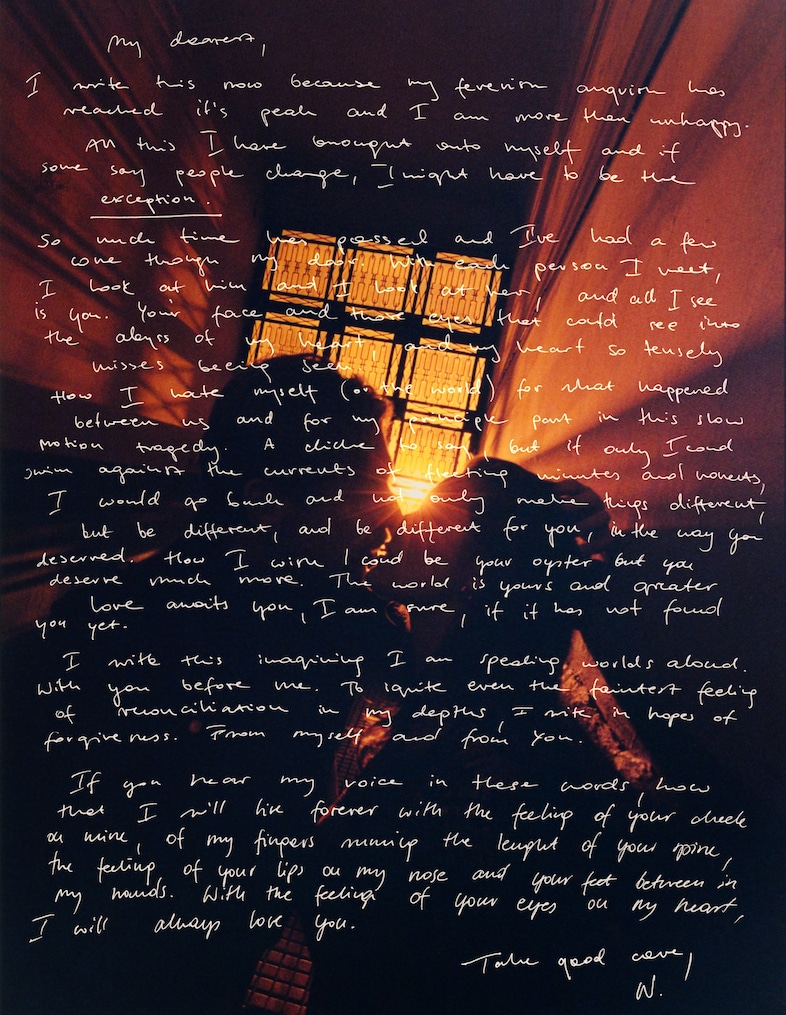 My dearest,
I write this now because my feverish anguish has
reached it's peak and I am more then unhappy.
All this I have brought onto myself and if
some say people change, I might have to be the
exception.
So much time has passed and I've had a few
come though my door. With each person I meet,
I look at him and I look at her, and all I see
is you. Your face and those eyes that could see into
the abyss of my heart, and my heart so tensely
misses being seen.
How I hate myself (or the world) for what happened
between us and for my principle part in this slow
motion tragedy. A cliche to say, but if only I coud
swim against the currents of fleeting minutes and moments,
I would go back and not only make things different,
but be different, and be different for you, in the way you
deserved. How I wish I coud be your oyster but you
deserve much more. The world is yours and greater
love awaits you, I am sure, if it has not found
you yet.
I write this imagining I am speaking worlds aloud.
With you before me. To ignite even the faintest feeling
of reconciliation in my depths, I write in hopes of
forgiveness. From myself and from you.
If you hear my voice in these words, know
that I will live forever with the feeling of your cheek
on mine, of my fingers running the lenght of your spine,
the feeling of your lips on my nose and your feet between in
my hands. With the feeling of your eyes on my heart,
I will always love you.
Take good care,
W.